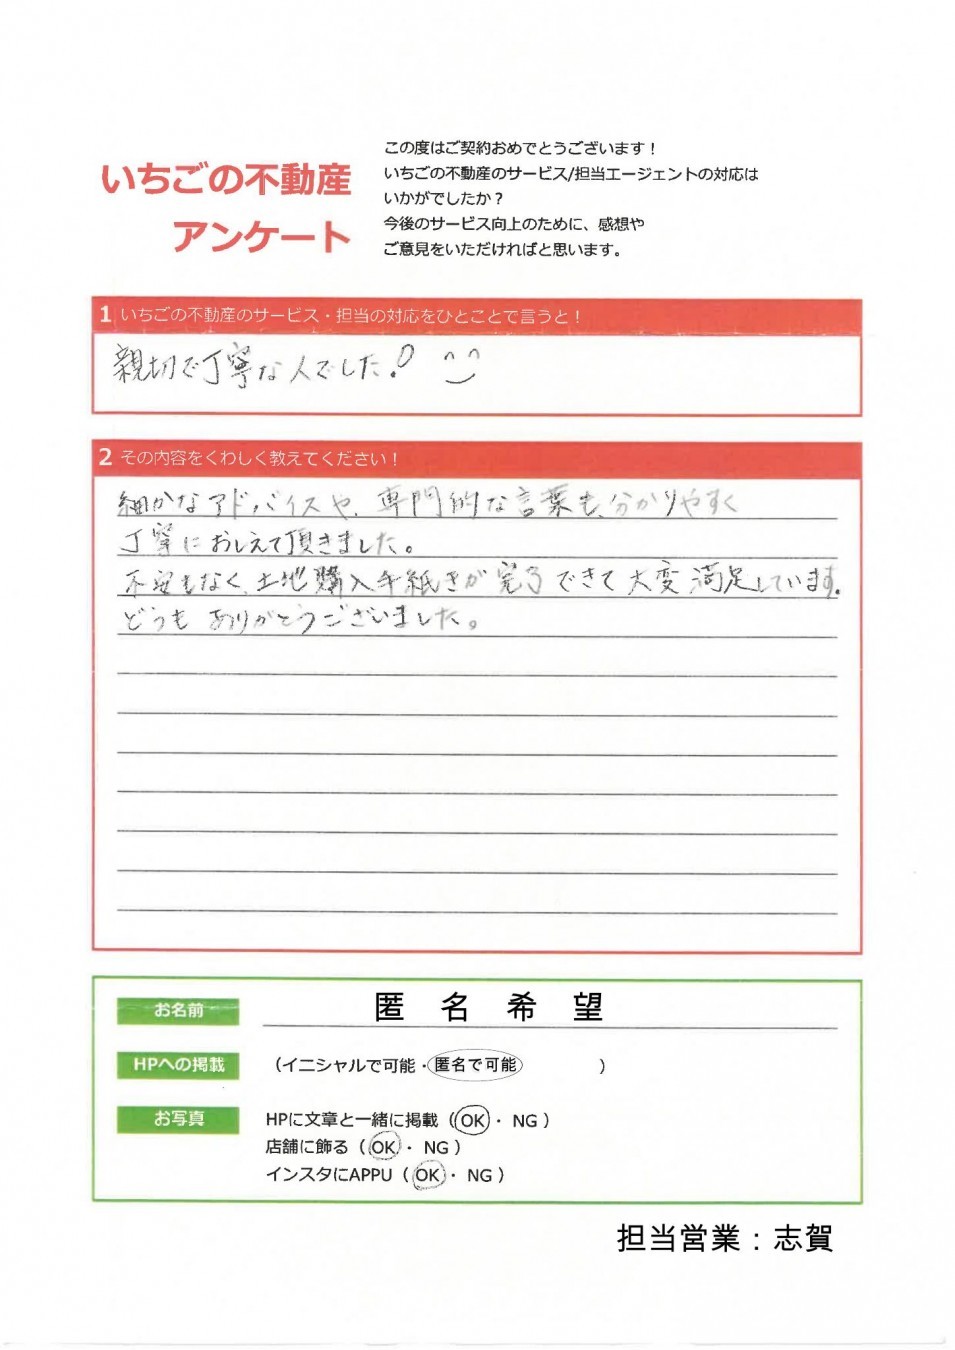 いちごの不動産
アンケート
この度はご契約おめでとうございます！
いちごの不動産のサービス/担当エージェントの対応は
いかがでしたか？
今後のサービス向上のために、感想や
ご意見をいただければと思います。
1 いちごの不動産のサービス・担当の対応をひとことで言うと！
親切で丁寧な人でした！
2 その内容をくわしく教えてください！
細かなアドバイスや、専門的な言葉も、分かりやすく
丁寧におしえて頂きました。
不安もなく、土地購入手紙きが完了できて大変満足しています。
どうもありがとうございました。
お名前 匿名希望
HPへの掲載 （イニシャルで可能・匿名で可能 ）
お写真 HPに文章と一緒に掲載（OK・NG）
店舗に飾る（OK・NG）
インスタにAPPU（OK・NG）
担当営業：志賀